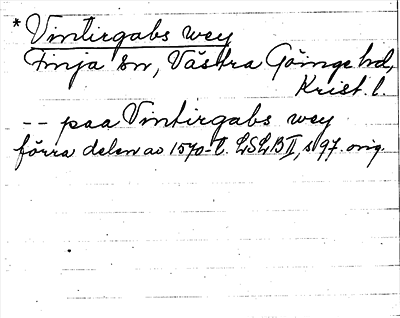 * Vintirgabs wey
Finja sn, Västra Göinge hd,
Krist. l.
-- paa Vintirgabs wey
förra delen av 1570-t. LSLB II, s 97. orig.